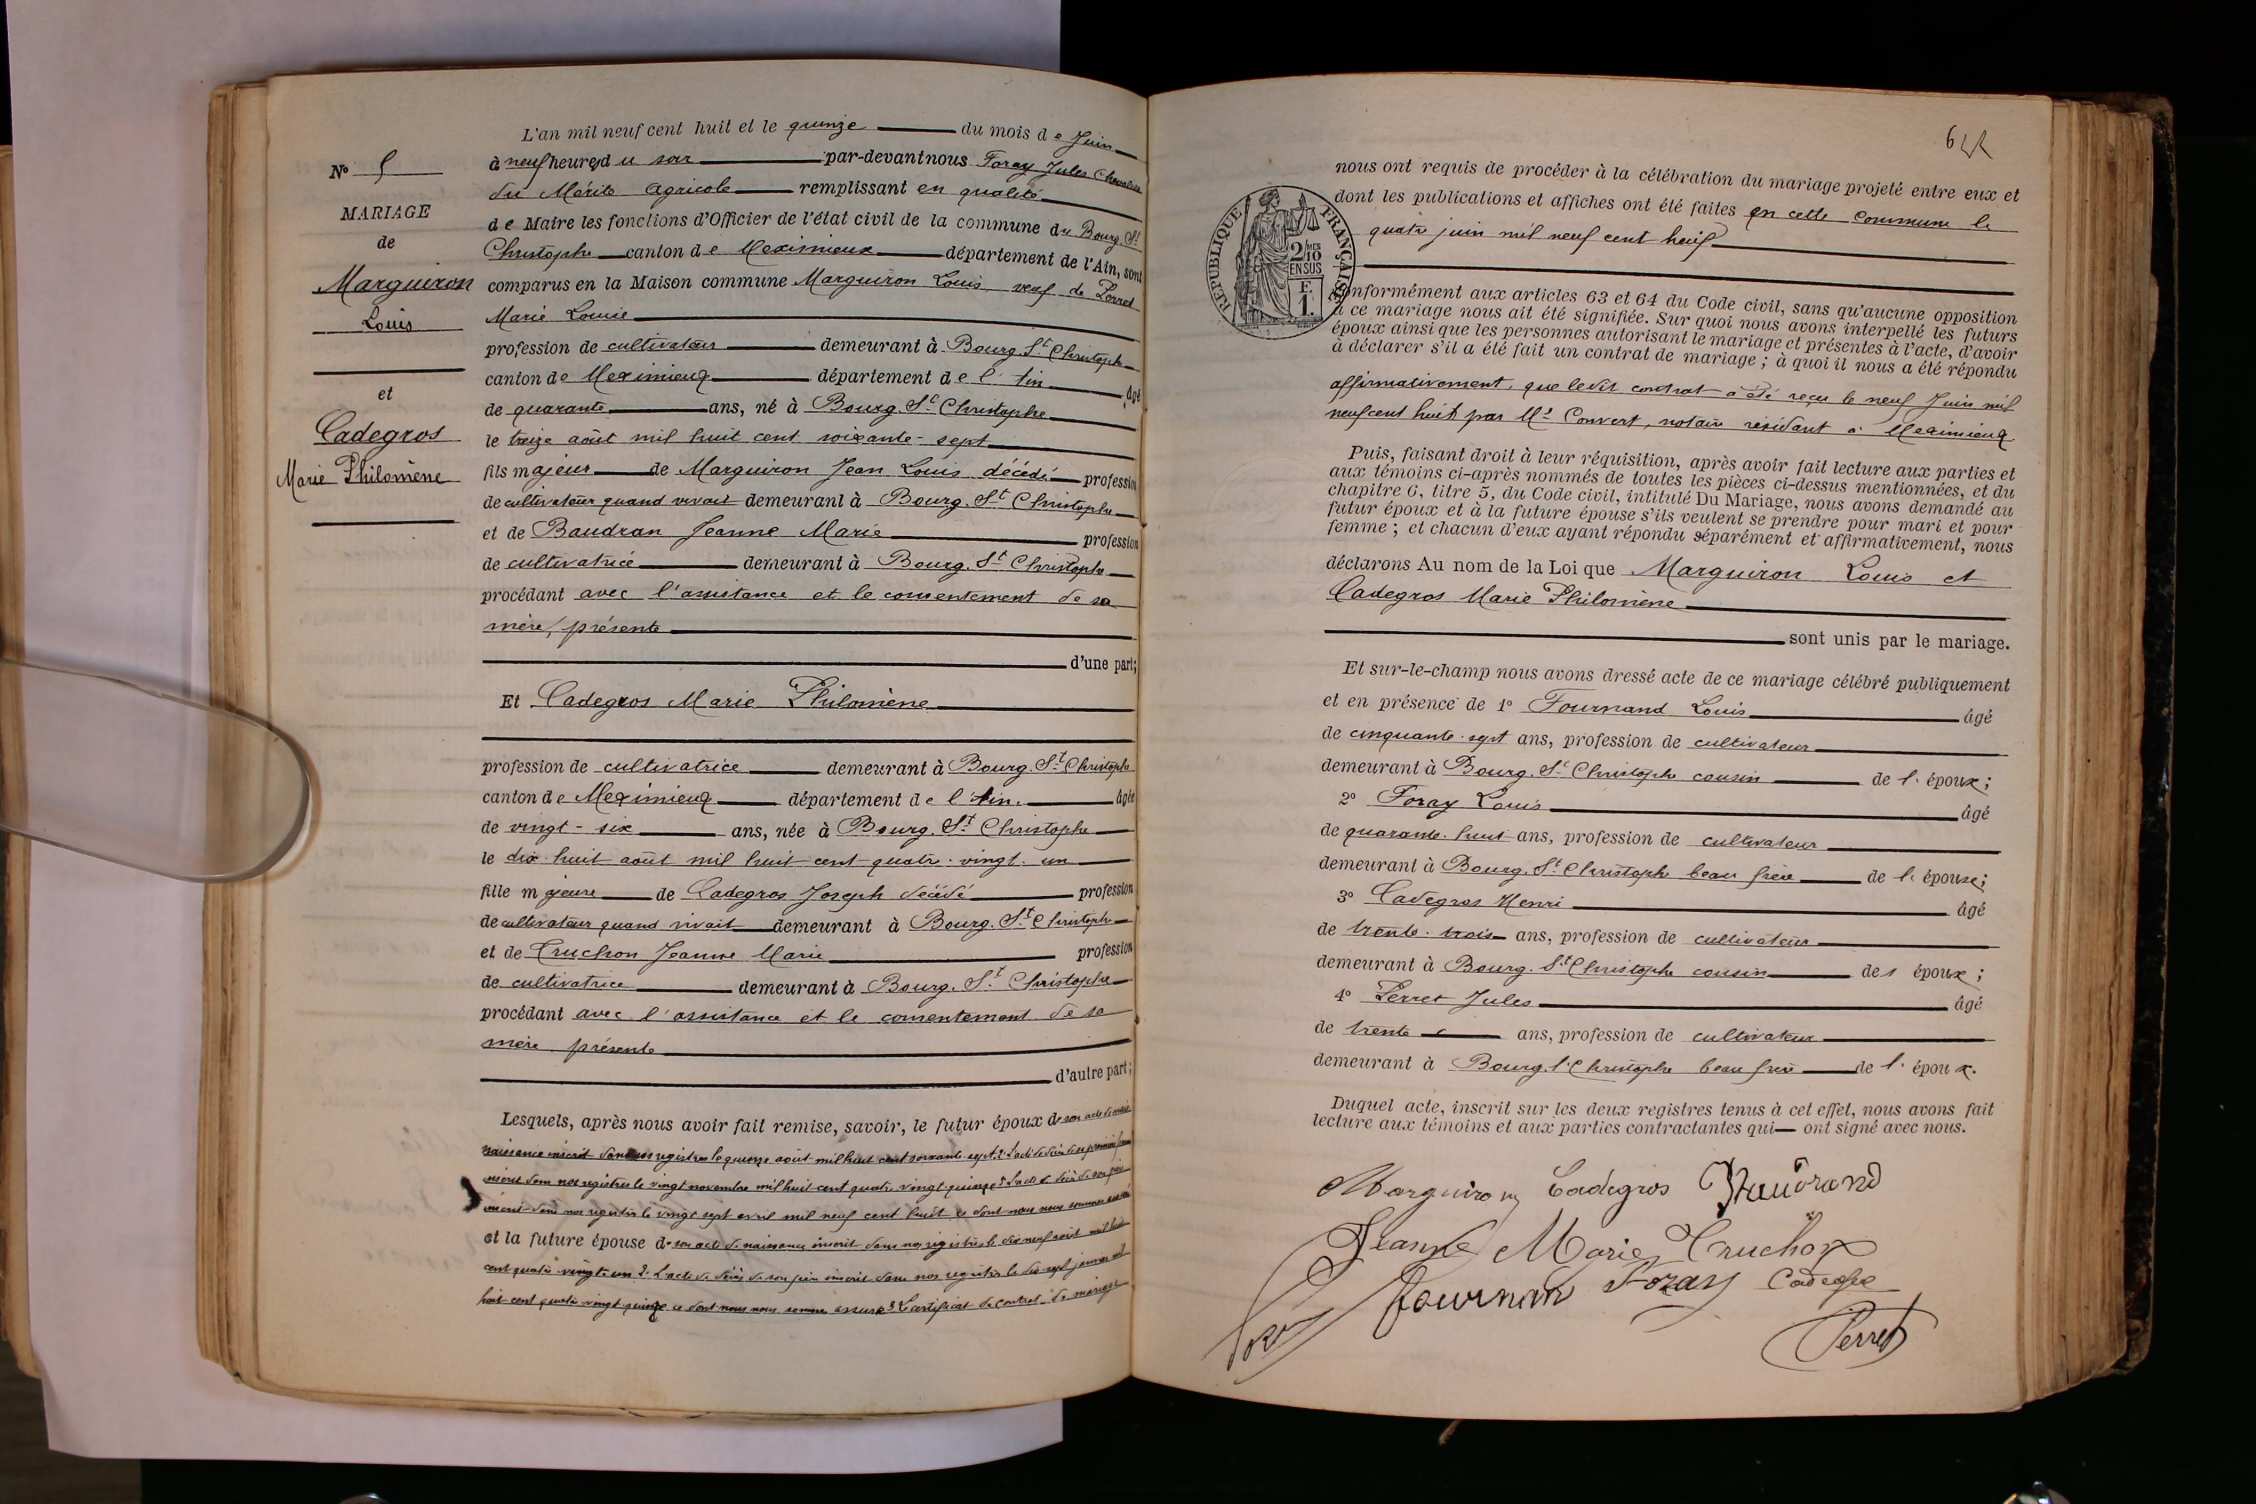 L'an mil neuf cent huit et le quinze du mois de Juin
N° 5
à neuf heures du soir par-devant nous Foray Jules Chevalier
du Mérite agricole remplissant en qualité
MARIAGE
de Maire les fonctions d'Officier de l'état civil de la commune du Bourg St
de
Christophe canton de Meximieux département de l'Ain, sont
Marguiron
comparus en la Maison commune Marguiron Louis veuf de Perret
Louis
Marie Louise
profession de cultivateur demeurant à Bourg St Christophe
canton de Meximieux département de l'Ain âgé
et
de quarante ans, né à Bourg St Christophe
Cadegros
le treize août mil huit cent soixante-sept
Marie Philomène
fils majeur de Marguiron Jean Louis décédé profession
de cultivateur quand vivait demeurant à Bourg St Christophe
et de Baudran Jeanne Marie profession
de cultivatrice demeurant à Bourg St Christophe
procédant avec l'assistance et le consentement de sa
mère, présente
d'une part;
Et Cadegros Marie Philomène
profession de cultivatrice demeurant à Bourg St Christophe
canton de Meximieux département de l'Ain. âgée
de vingt-six ans, née à Bourg St Christophe
le dix huit août mil huit cent quatre vingt un
fille majeure de Cadegros Joseph décédé profession
de cultivateur quand vivait demeurant à Bourg St Christophe
et de Cruchon Jeanne Marie profession
de cultivatrice demeurant à Bourg St Christophe
procédant avec l'assistance et le consentement de sa
mère présente
d'autre part;
Lesquels, après nous avoir fait remise, savoir, le futur époux de son acte de
naissance inscrit dans nos registres le quinze août mil huit cent soixante sept 2° L'acte de décès de sa première femme
inscrit dans nos registres le vingt novembre mil huit cent quatre vingt quinze 3° L'acte de décès de son père
inscrit dans nos registres le vingt sept avril mil neuf cent huit ce dont nous nous sommes assuré
et la future épouse de son acte de naissance inscrit dans nos registres le dix neuf août mil huit
cent quatre vingt un 2° L'acte de décès de son père inscrit dans nos registres le dix sept janvier mil
huit cent quatre vingt quinze ce dont nous nous sommes assuré 3° Certificat de contrat de mariage
nous ont requis de procéder à la célébration du mariage projeté entre eux et
dont les publications et affiches ont été faites en cette commune le
quatre juin mil neuf cent huit
RÉPUBLIQUE FRANÇAISE
2/10 MES EN SUS
F. 1.
Conformément aux articles 63 et 64 du Code civil, sans qu'aucune opposition
à ce mariage nous ait été signifiée. Sur quoi nous avons interpellé les futurs
époux ainsi que les personnes autorisant le mariage et présentes à l'acte, d'avoir
à déclarer s'il a été fait un contrat de mariage; à quoi il nous a été répondu
affirmativement, que ledit contrat a été reçu le neuf Juin mil
neuf cent huit par Me Convert, notaire résidant à Meximieux
Puis, faisant droit à leur réquisition, après avoir fait lecture aux parties et
aux témoins ci-après nommés de toutes les pièces ci-dessus mentionnées, et du
chapitre 6, titre 5, du Code civil, intitulé Du Mariage, nous avons demandé au
futur époux et à la future épouse s'ils veulent se prendre pour mari et pour
femme; et chacun d'eux ayant répondu séparément et affirmativement, nous
déclarons Au nom de la Loi que Marguiron Louis et
Cadegros Marie Philomène
sont unis par le mariage.
Et sur-le-champ nous avons dressé acte de ce mariage célébré publiquement
et en présence de 1° Fournand Louis âgé
de cinquante-sept ans, profession de cultivateur
demeurant à Bourg St Christophe cousin de l'époux;
2° Foray Louis âgé
de quarante-huit ans, profession de cultivateur
demeurant à Bourg St Christophe beau frère de l'épouse;
3° Cadegros Henri âgé
de trente-trois ans, profession de cultivateur
demeurant à Bourg St Christophe cousin des époux;
4° Perret Jules âgé
de trente ans, profession de cultivateur
demeurant à Bourg St Christophe beau frère de l'époux.
Duquel acte, inscrit sur les deux registres tenus à cet effet, nous avons fait
lecture aux témoins et aux parties contractantes qui ont signé avec nous.
Marguiron Cadégros Baudrand
Jeanne Marie Cruchon
Fournand Foray Cadegro
Perret